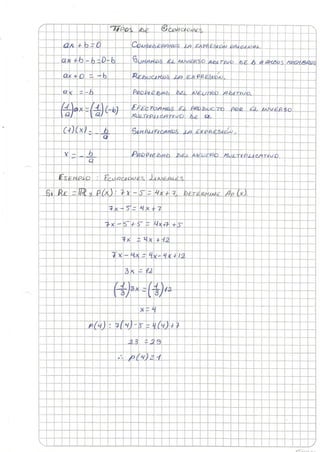 TIPOS DE ECUACIONES
ax + b = 0 CONSIDERAMOS LA EXPRESIÓN ORIGINAL.
ax + b - b = 0 - b SUMAMOS EL INVERSO ADITIVO DE b A AMBOS MIEMBROS
ax + 0 = -b REDUCIMOS LA EXPRESIÓN.
ax = -b PROPIEDAD DEL NEUTRO ADITIVO.
(1/a)ax = (1/a)(-b) EFECTUAMOS EL PRODUCTO POR EL INVERSO
MULTIPLICATIVO DE a.
(1)(x) = -b/a SIMPLIFICAMOS LA EXPRESIÓN.
x = -b/a PROPIEDAD DEL NEUTRO MULTIPLICATIVO.
EJEMPLO: ECUACIONES LINEALES
Si Re = ℝ y P(x): 7x - 5 = 4x + 7, DETERMINE Ap(x).
7x - 5 = 4x + 7
7x - 5 + 5 = 4x + 7 + 5
7x = 4x + 12
7x - 4x = 4x - 4x + 12
3x = 12
(1/3)3x = (1/3)12
x = 4
P(4): 7(4) - 5 = 4(4) + 7
23 = 23
∴ P(4) = 1